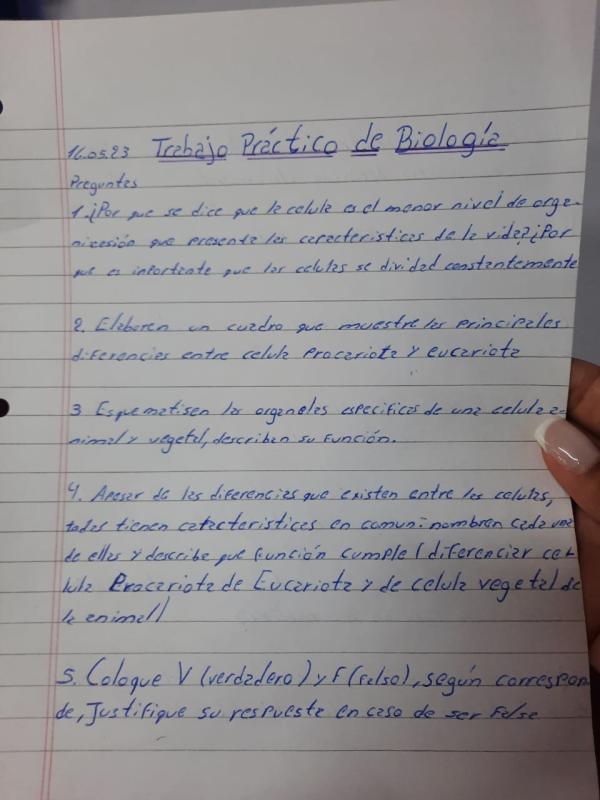 16.05.23 Trabajo Práctico de Biología
Preguntas
1. ¿Por que se dice que la celula es el menor nivel de orga-
nicesión que presenta las caracteristicas de la vida? ¿Por
que es inportante que las celulas se dividad constantemente
2. Elaboren un cuadro que muestre las principales
diferencias entre celula procariota y eucariota
3 Esquematisen las organelas especificas de una celula a-
nimal y vegetal, describan su función.
4. Apesar de las diferencias que existen entre las celulas,
todas tienen caracteristicas en comun: nombren cada una
de ellas y describe que función cumple (diferenciar ce-
lula Procariota de Eucariota y de celula vegetal de
la animal)
5. Coloque V (verdadero) y F (Falso), según correspon-
de, Justifique su respuesta en caso de ser False